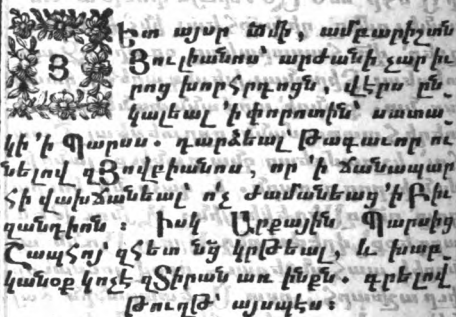 Յ Ետ այսր ամի, ամբարիշտն
Յուլիանոս՝ արժանի չար իւ
րոց խորհրդոցն, վէրս ըն֊
կալեալ ՚ի փորոտին՝ սատա֊
կի ՚ի Պարսս. դարձեալ՝ թագաւոր ու
նելով զՅովբիանոս, որ ՚ի ճանապար
հի վախճանեալ՝ ո՛չ ժամանեաց ՚ի Բիւ
զանդիոն ։ Իսկ Արքային Պարսից
Շապհոյ՝ զհետ նց կրթեալ, և խաբ֊
կանօք կոչէ զՏիրան առ ինքն. գրելով
թուղթ՝ այսպէս ։